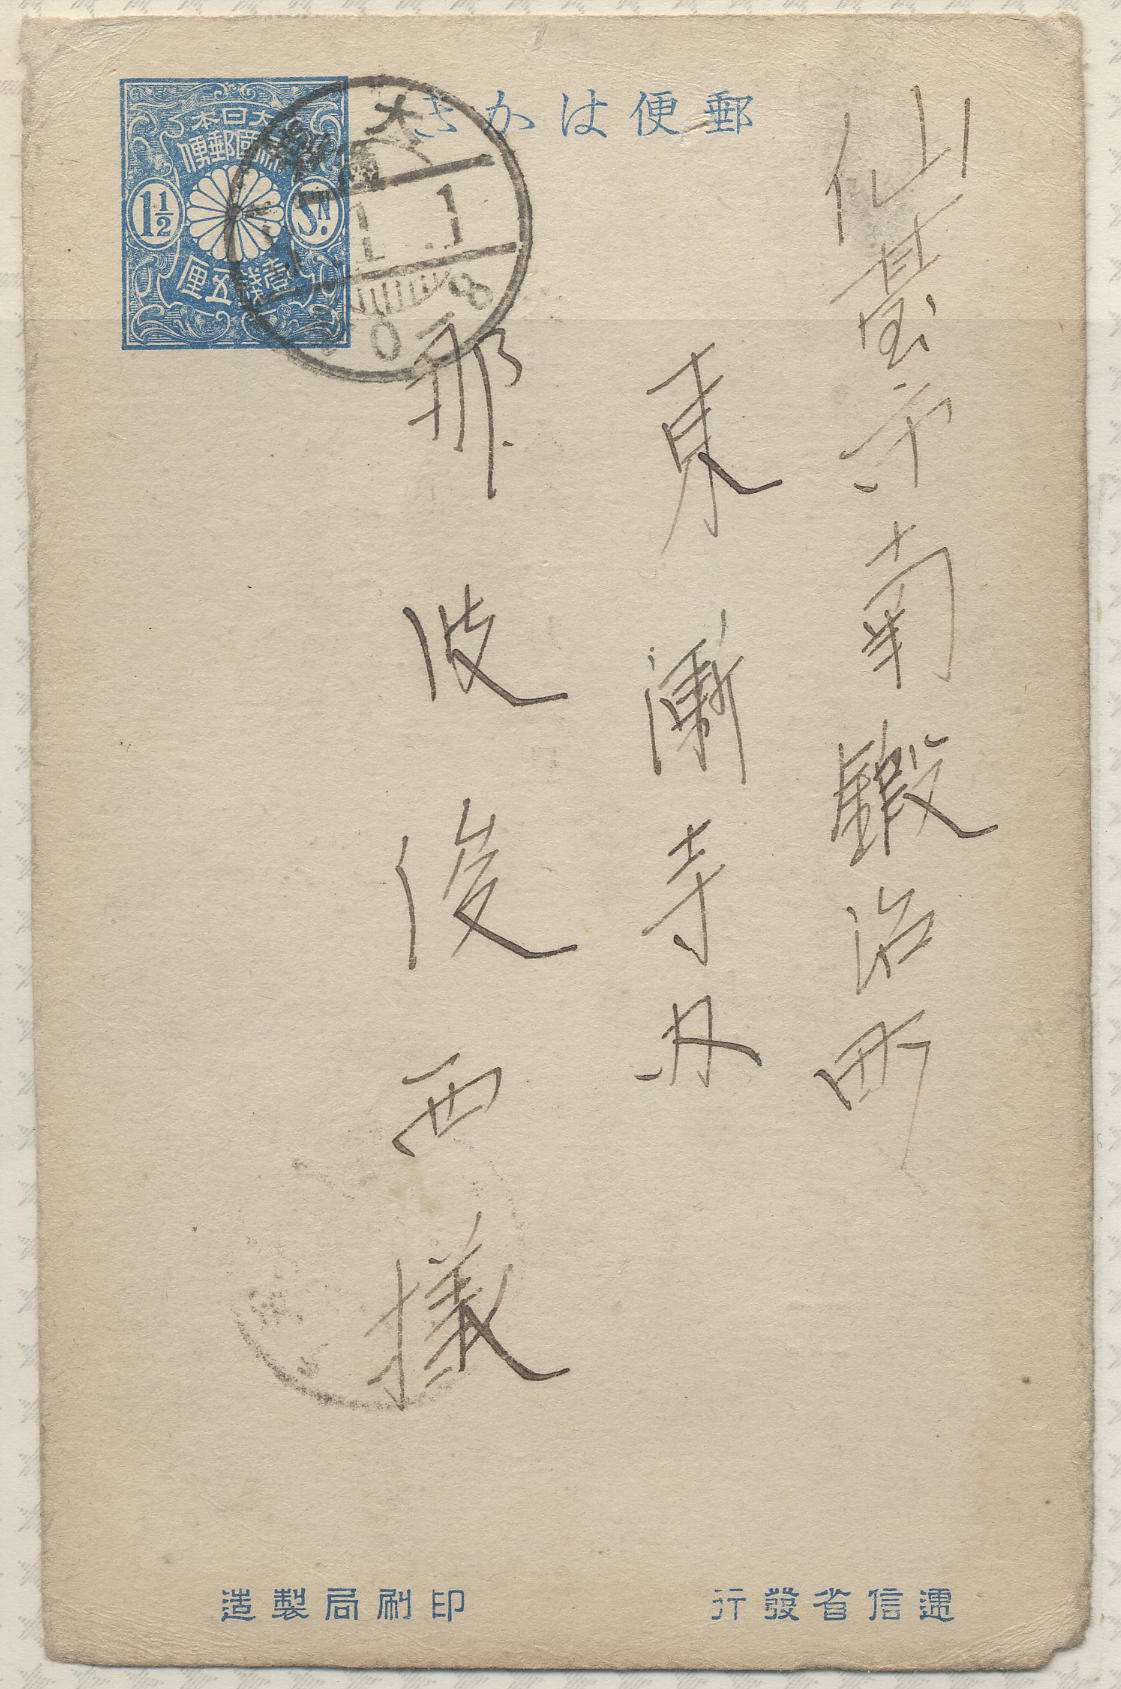 郵便はかき
大日本
帝國郵便
1½
Sn.
壹錢五厘
大
1.1.1
0-8
仙䑓市南鍛治町
東漸寺内
那波俊西様
逓信省發行
印刷局製造